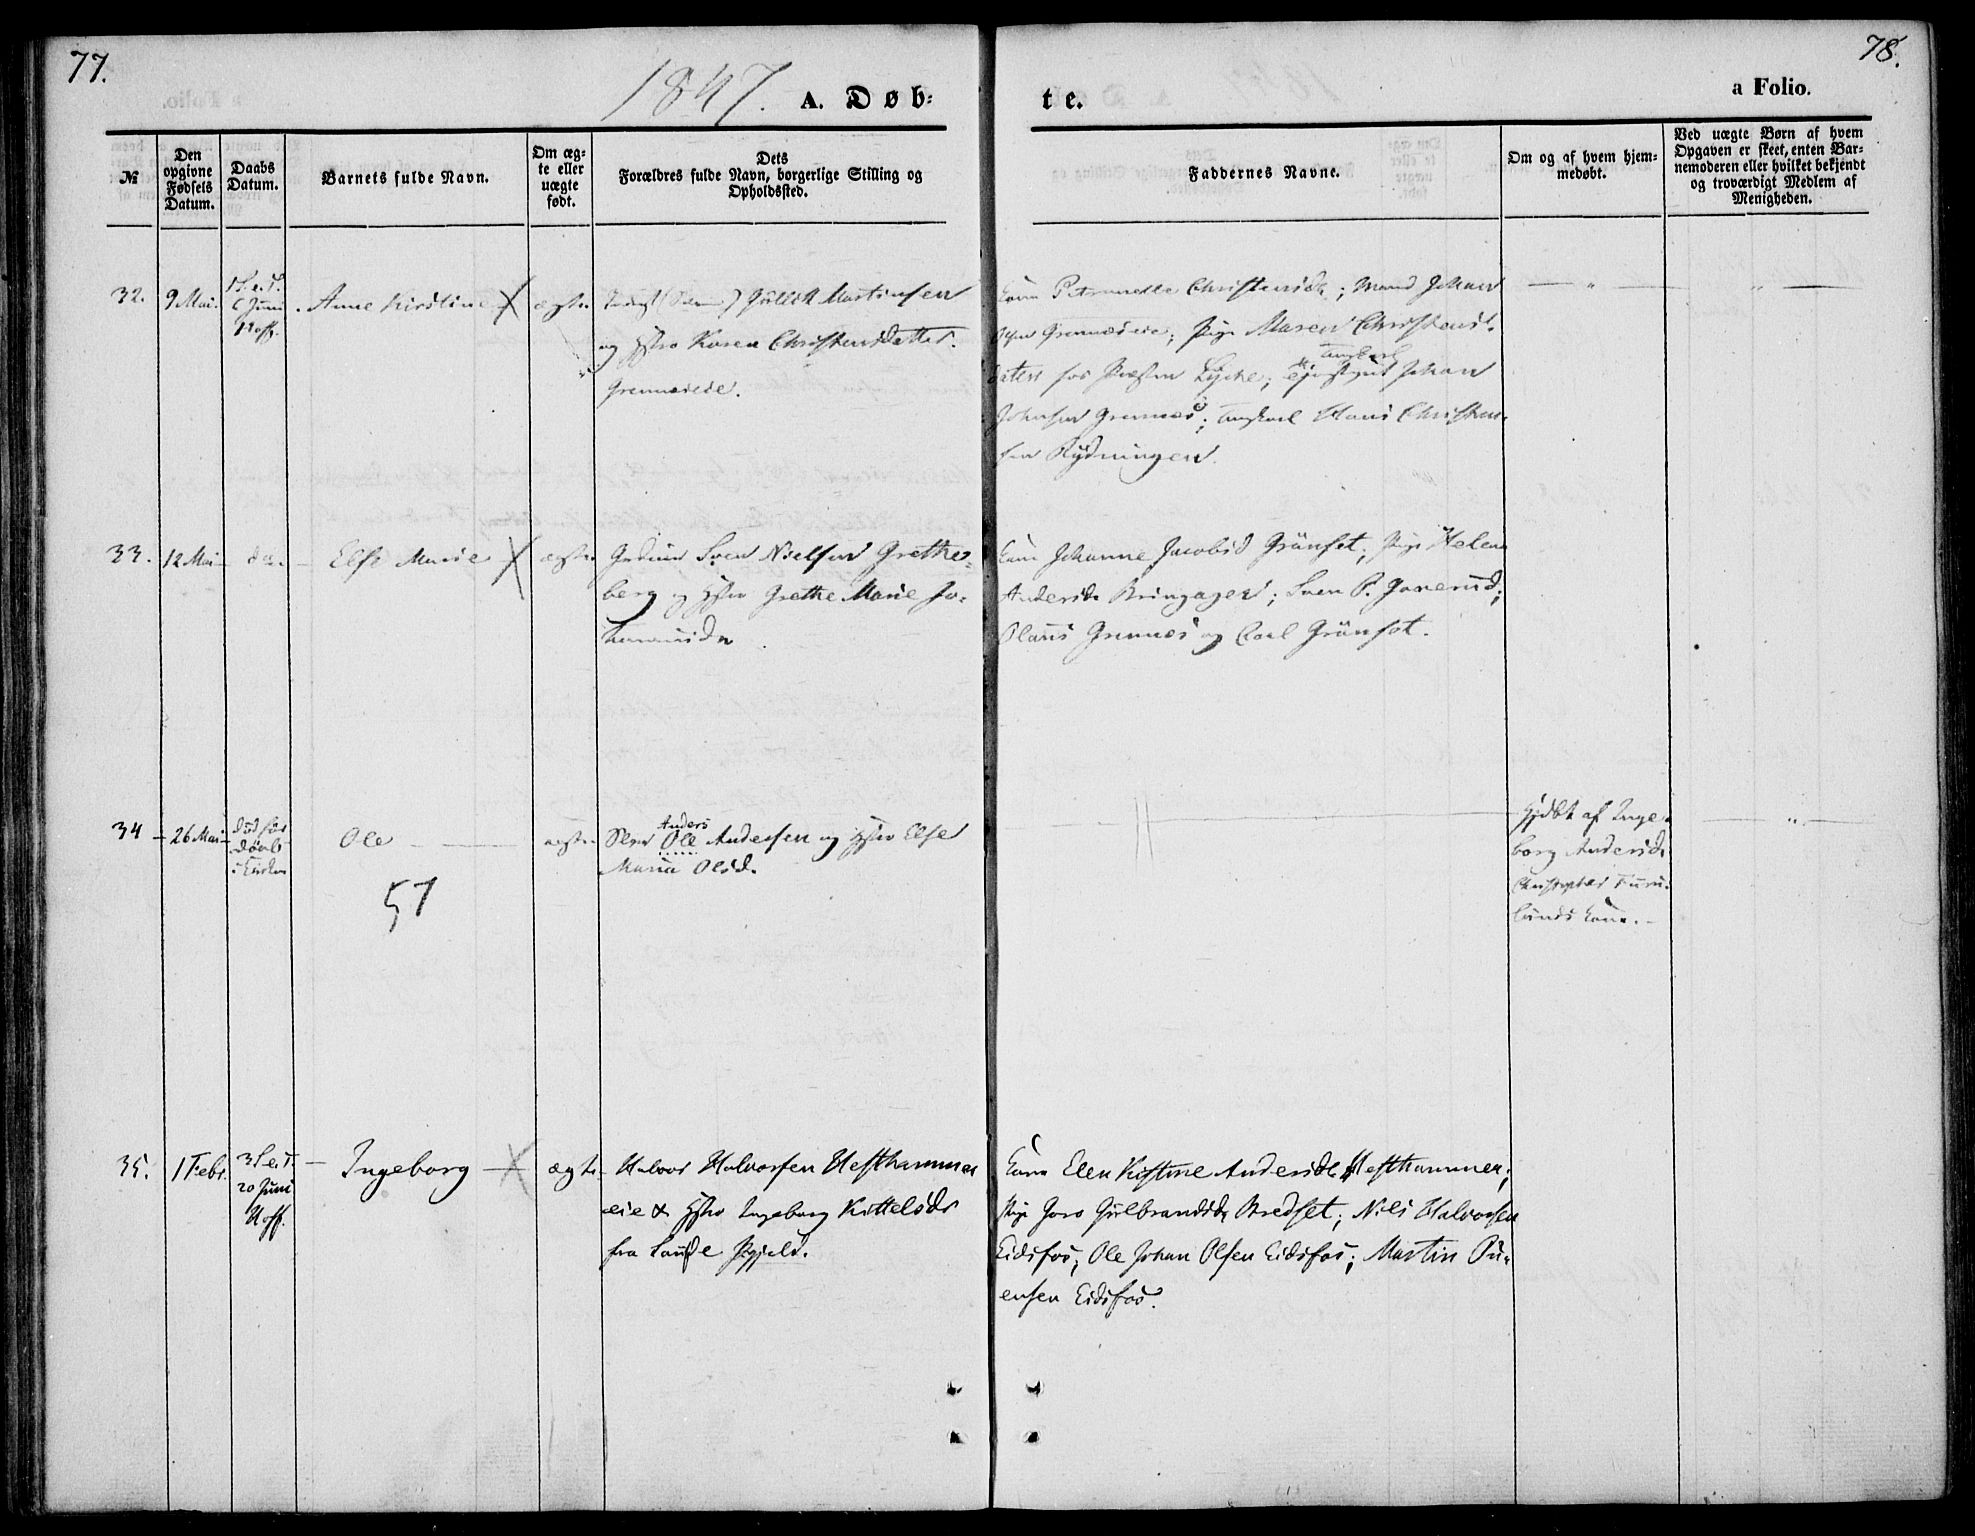 77.
1847. A. Døb-
te.
78.
a Folio.
№
Den
opgivne
Fødsels
Datum.
Daabs
Datum.
Barnets fulde Navn.
Om æg-
te eller
uægte
født.
Dets
Forældres fulde Navn, borgerlige Stilling og
Opholdssted.
Faddernes Navne.
Om og af hvem hjem-
medøbt.
Ved uægte Børn af hvem
Opgaven er skeet, enten Bar-
nemoderen eller hvilket bekjendt
og troværdigt Medlem af
Menigheden.
32. 9 Mai.
1 S. e. T.
6 Juni
Hoff.
Anne Kirstine X ægte
Gullik Martinsen
og Hstro Karen Christensdatter
Grennæseie.
Kone Petronelle Christensdr; Mand Johan
Grennæseie; Pige Maren Christens-
datter hos Præsten Lyche; Johan
Johnsen Grennes; Ungkarl Hans Christen-
sen Rydningen.
33. 12 Mai do. Else Marie X ægte
Gadm Sven Nielsen Grethe-
berg og Hstro Grethe Marie Jo-
hannisdr
Kone Johanne Jacobsd Grönset; Pige Helene
Andersdr Bringager; Sven P. Gaverud;
Hans Grennes og Carl Grönset.
34 26 Mai
död för
Daab
i Kirken
Ole
57
ægte
Anders
Ole Andersen og Hstro Else
Maria Olsd.
Hjdbt af Inge-
borg Andersdr
Christopher Furu-
lunds Kone.
35. 1 Febr.
3 S. e. T.
20 Juni
Hoff.
Ingeborg X ægte
Halvor Halvorsen Hesthammer
eie & Hstro Ingeborg Kittelsdr
fra Saude Pgjeld.
Kone Elen Kistine Andersdr Hesthammer;
Pige Joro Gulbrandsdr Bredset; Nils Halvorsen
Eidsfos; Ole Johan Olsen Eidsfos; Martin Pu-
ensen Eidsfos.